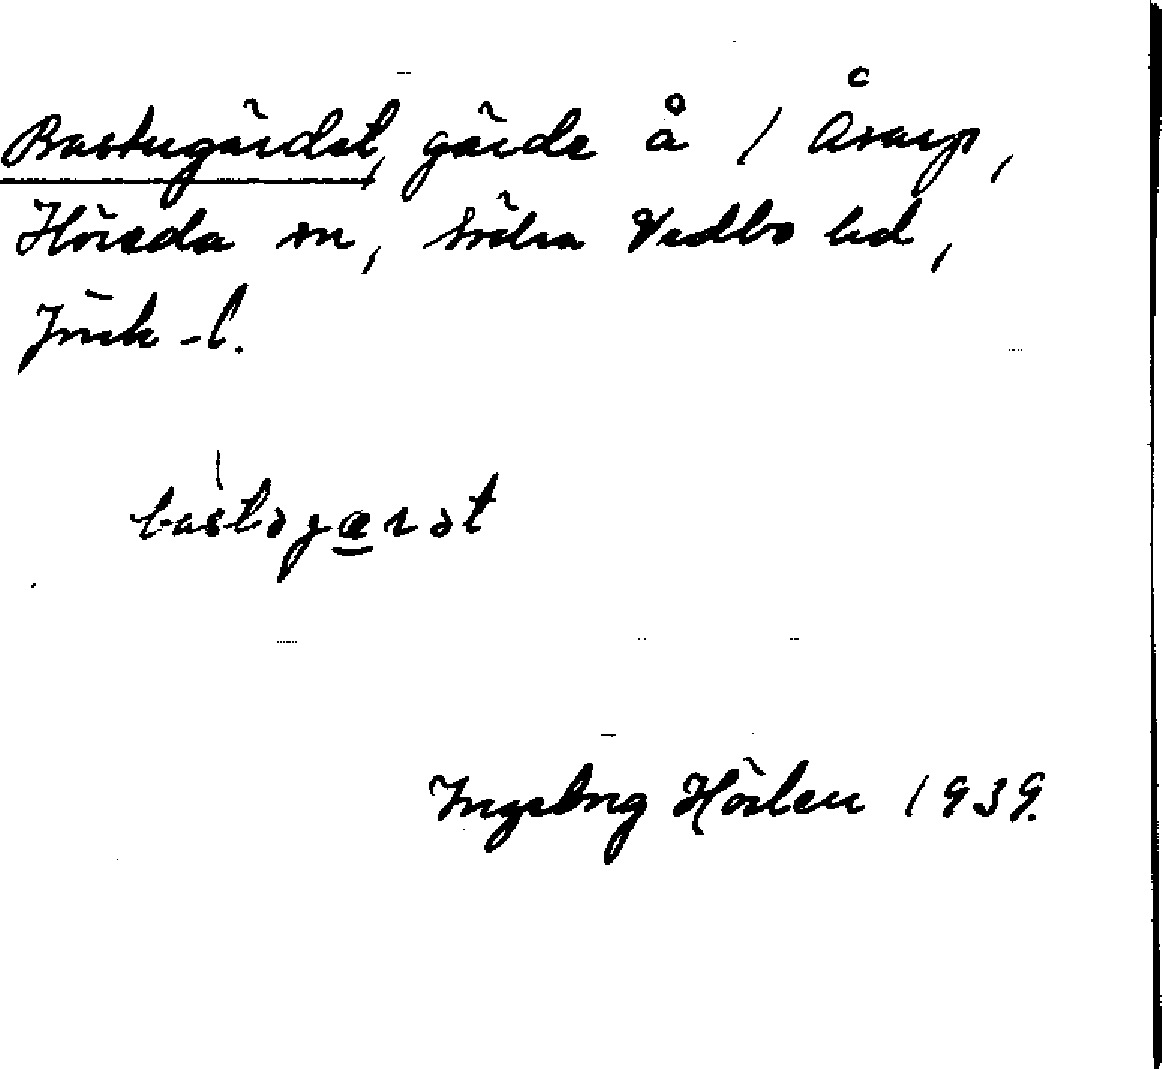 Bastugärdet, gärde å 1 Åsarp,
Höreda sn, Södra Vedbo hd,
Jönk-l.
bastogærət
Ingeborg Hörlen 1939.